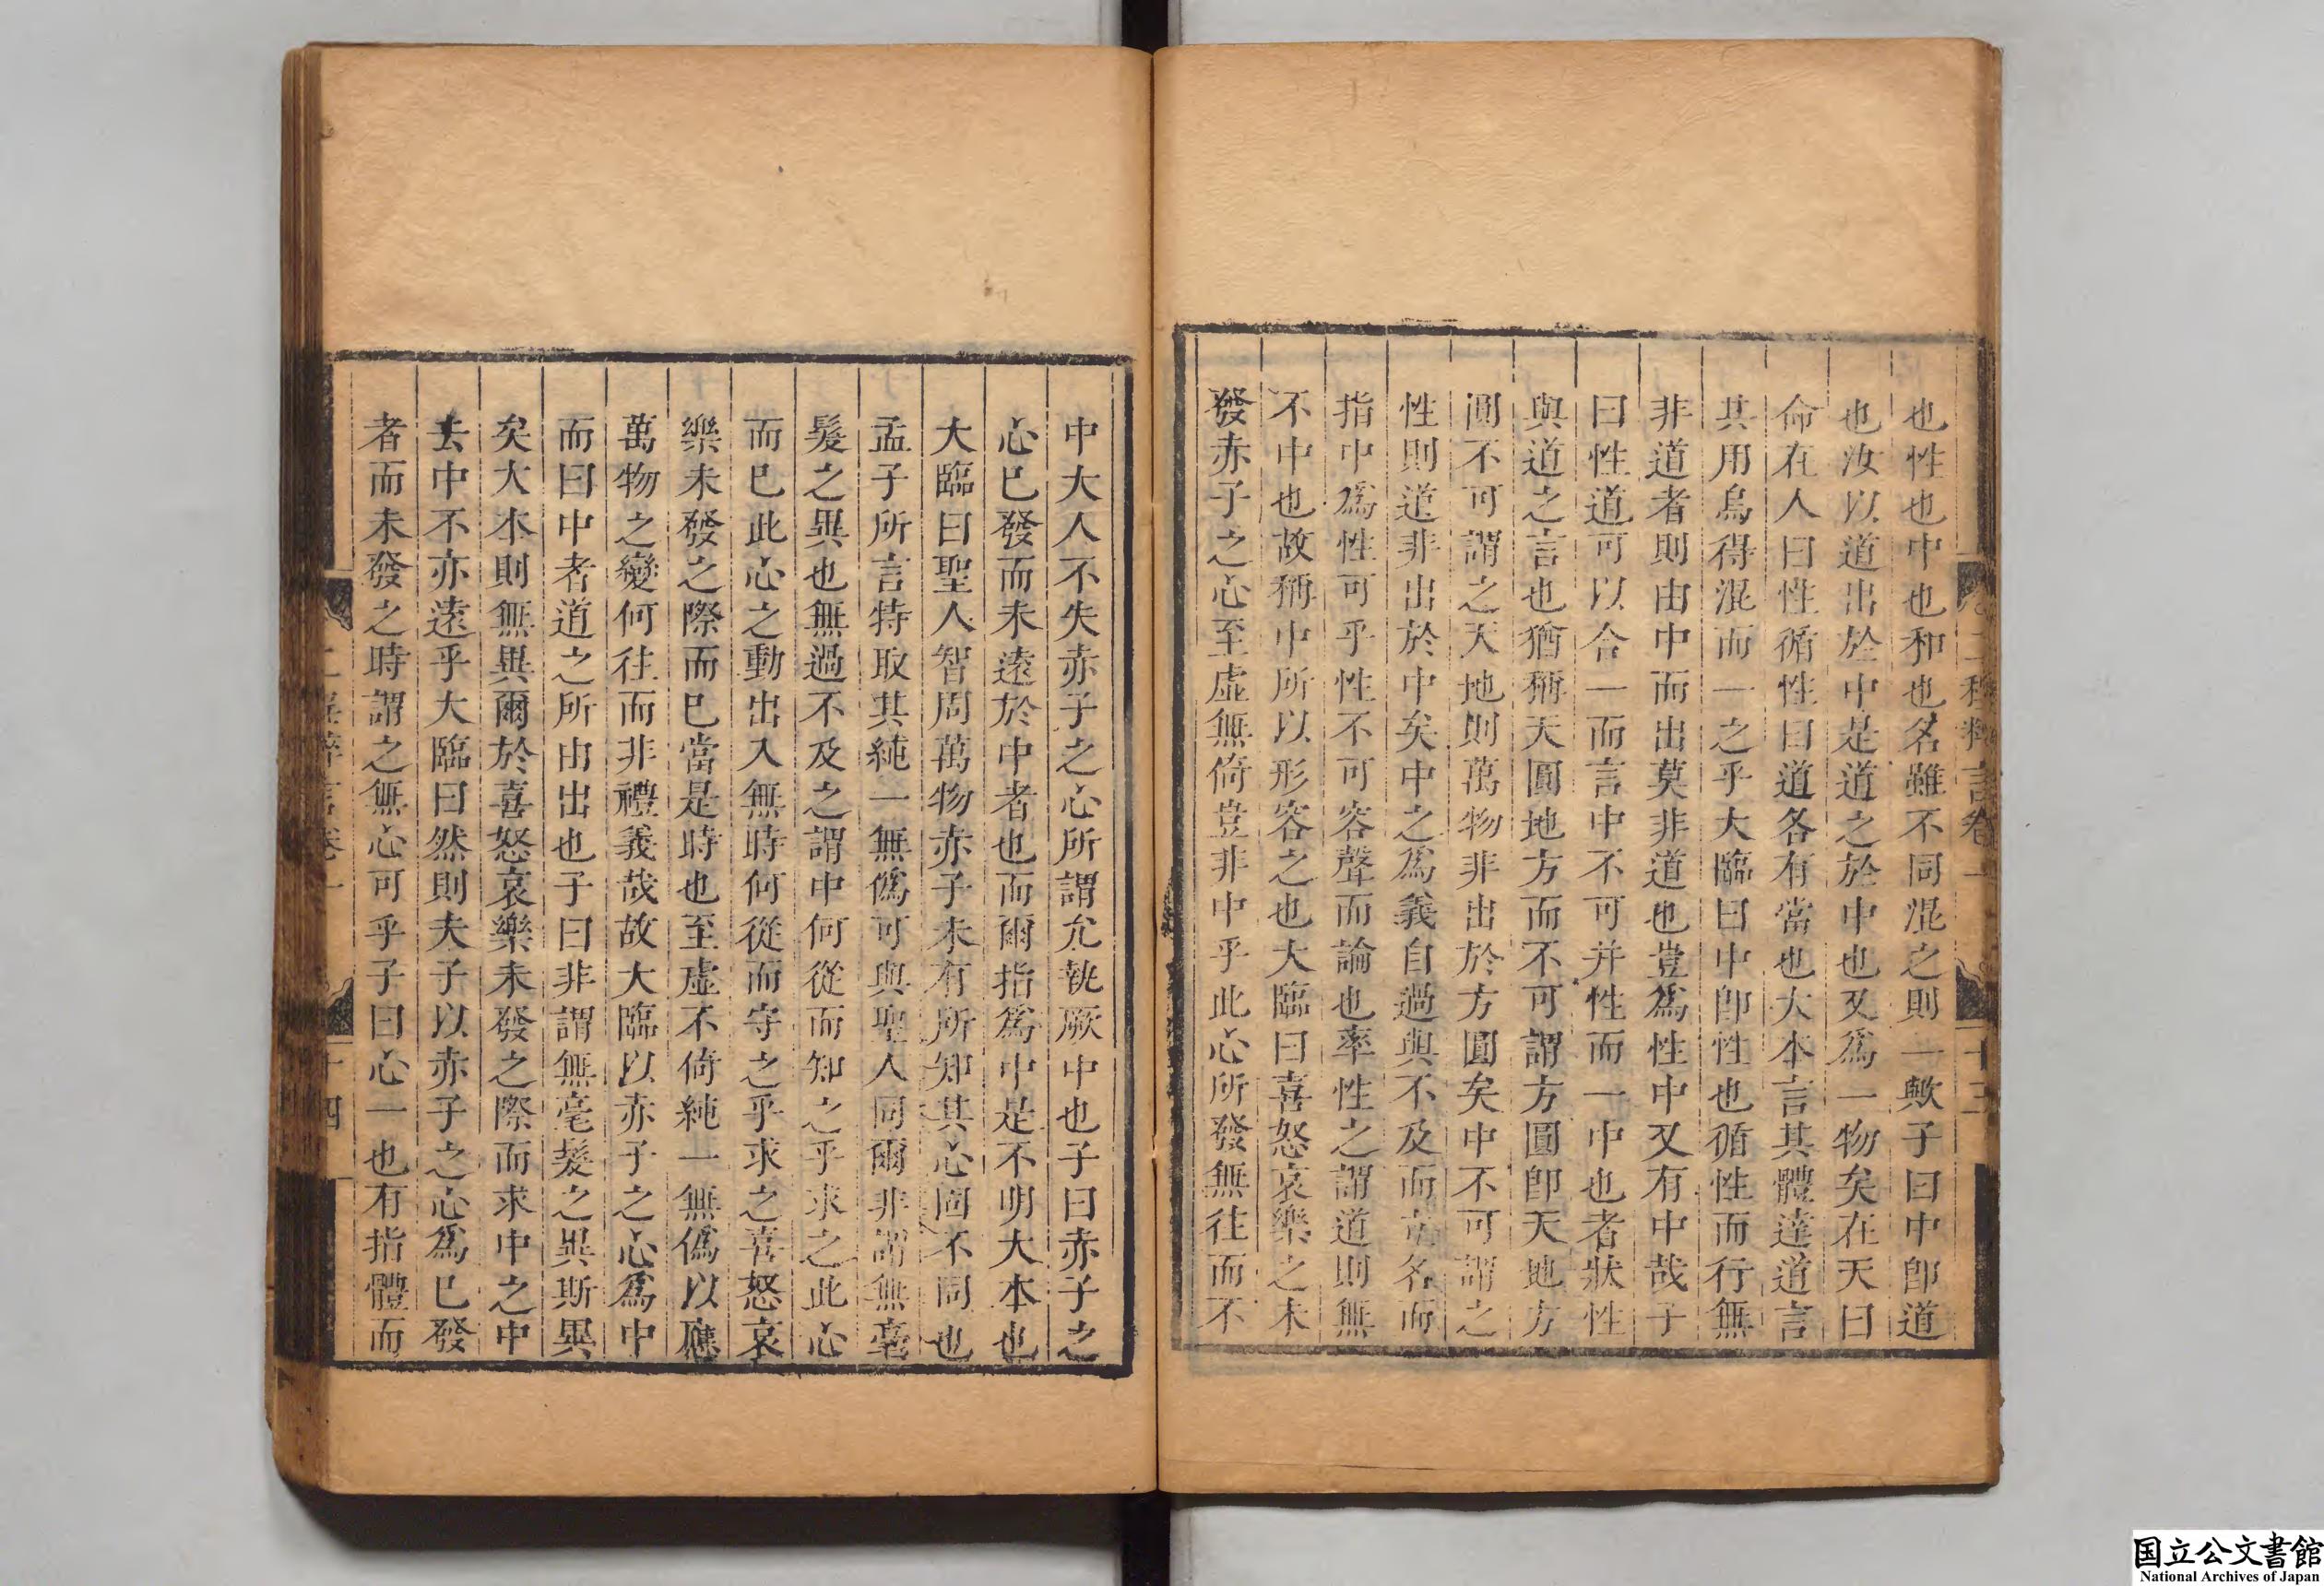 也性也中也和也名雖不同混之則一歟子曰中卽道
也汝以道出於中是道之於中也又爲一物矣在天曰
命在人曰性循性曰道各有當也大本言其體達道言
其用烏得混而一之乎大臨曰中卽性也循性而行無
非道者則由中而出莫非道也豈爲性中又有中哉子
曰性道可以合一而言中不可并性而一中也者狀性
與道之言也猶稱天圓地方而不可謂方圓卽天地方
圓不可謂之天地則萬物非出於方圓矣中不可謂之
性則道非出於中矣中之爲義自過與不及而立名而
指中爲性可乎性不可容聲而論也率性之謂道則無
不中也故稱中所以形容之也大臨曰喜怒哀樂之未
發赤子之心至虛無倚豈非中乎此心所發無往而不
二程粹言卷一
十三
中大人不失赤子之心所謂允執厥中也子曰赤子之
心已發而未遠於中者也而爾指爲中是不明大本也
大臨曰聖人智周萬物赤子未有所知其心固不同也
孟子所言特取其純一無僞可與聖人同爾非謂無毫
髮之異也無過不及之謂中何從而知之乎求之此心
而已此心之動出入無時何從而守之乎求之喜怒哀
樂未發之際而已當是時也至虛不倚純一無僞以應
萬物之變何往而非禮義哉故大臨以赤子之心爲中
而曰中者道之所由出也子曰非謂無毫髮之異斯異
矣大本則無異爾於喜怒哀樂未發之際而求中之中
去中不亦遠乎大臨曰然則夫子以赤子之心爲已發
者而未發之時謂之無心可乎子曰心一也有指體而
二程粹言卷一
十四
国立公文書館
National Archives of Japan